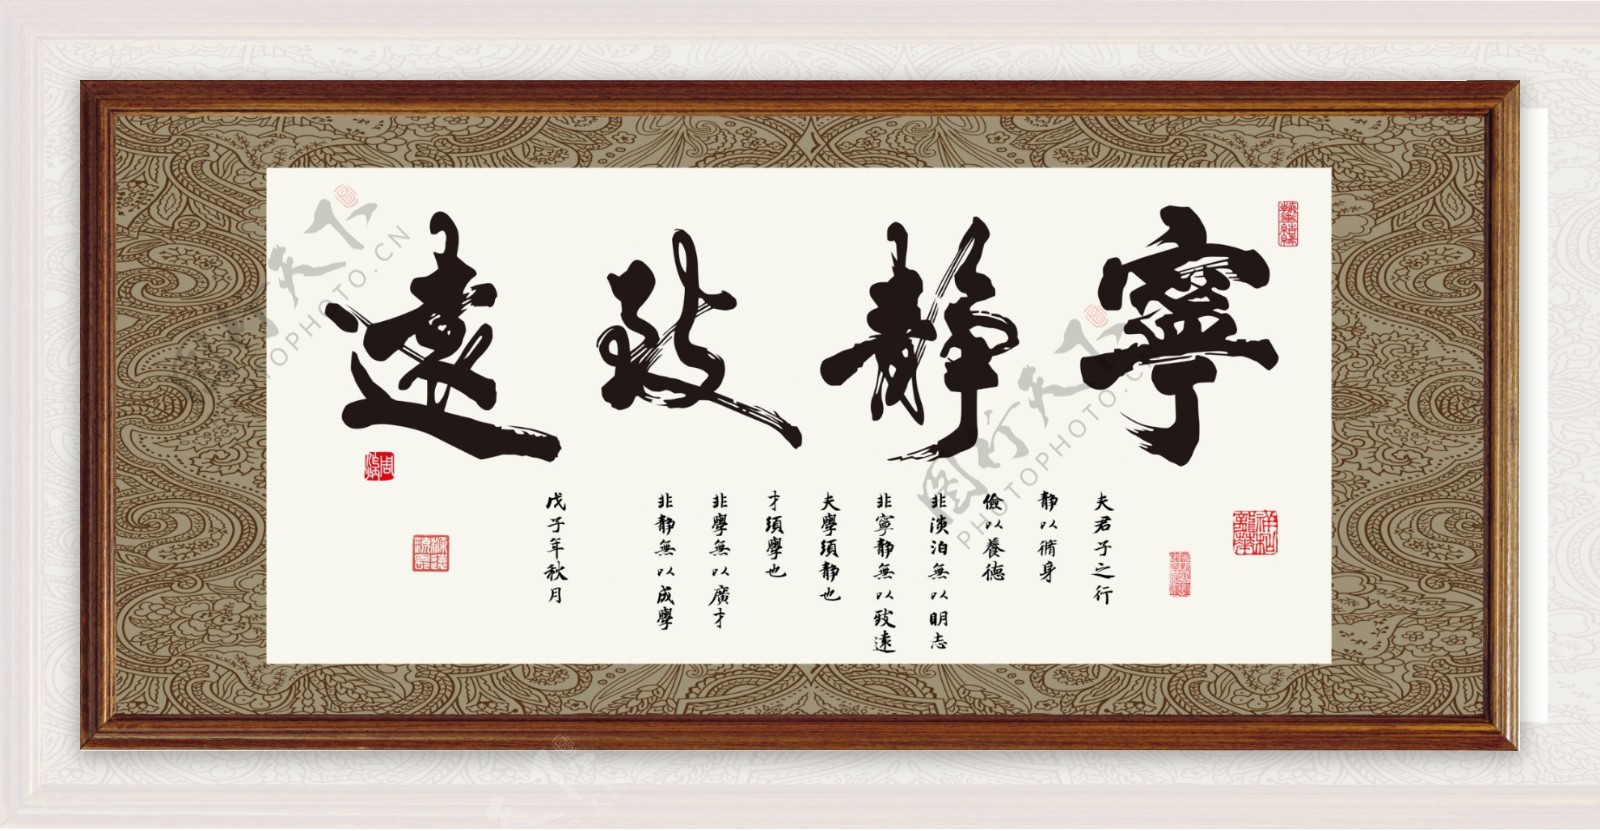 寧靜致遠
夫君子之行
靜以脩身
儉以養德
非淡泊無以明志
非寧靜無以致遠
夫學須靜也
才須學也
非學無以廣才
非靜無以成學
戊子年秋月
图行天下
PHOTOPHOTO.CN